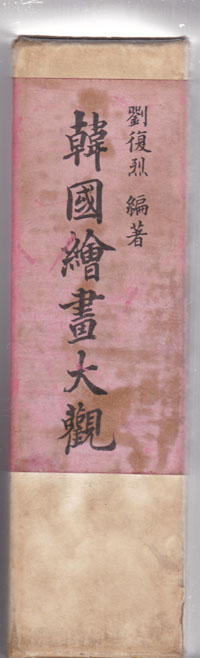 劉復烈 編著
韓國繪畫大觀